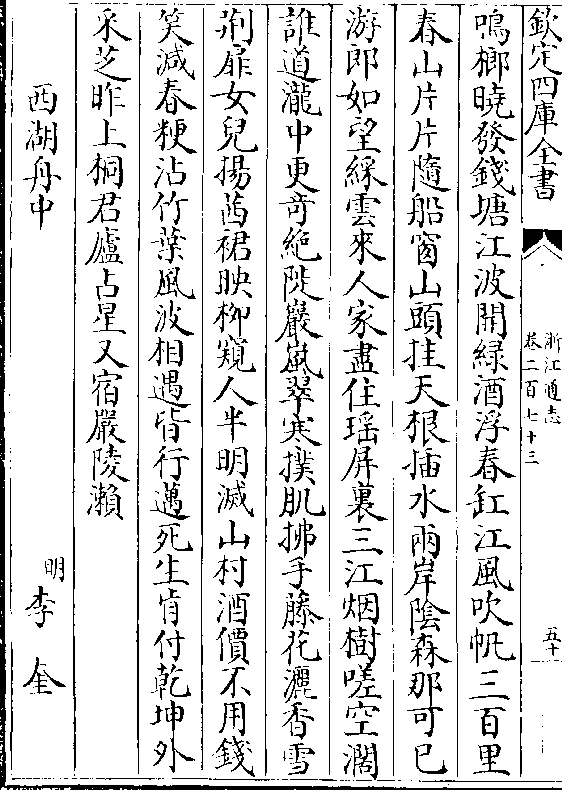 欽定四庫全書
浙江通志
卷二百七十三
五十
鳴榔曉發錢塘江波開緑酒浮春缸江風吹帆三百里
春山片片隨船窗山頭拄天根插水兩岸陰森那可已
游郎如望綵雲來人家盡住瑶屏裏三江烟樹嗟空濶
誰道瀧中更奇絶陡巖嵐翠寒撲肌拂手藤花灑香雪
荆扉女兒揚茜裙映柳窺人半明滅山村酒價不用錢
笑減春粳沽竹葉風波相遇皆行邁死生肯付乾坤外
采芝昨上桐君廬占星又宿嚴陵瀬
西湖舟中
明李奎